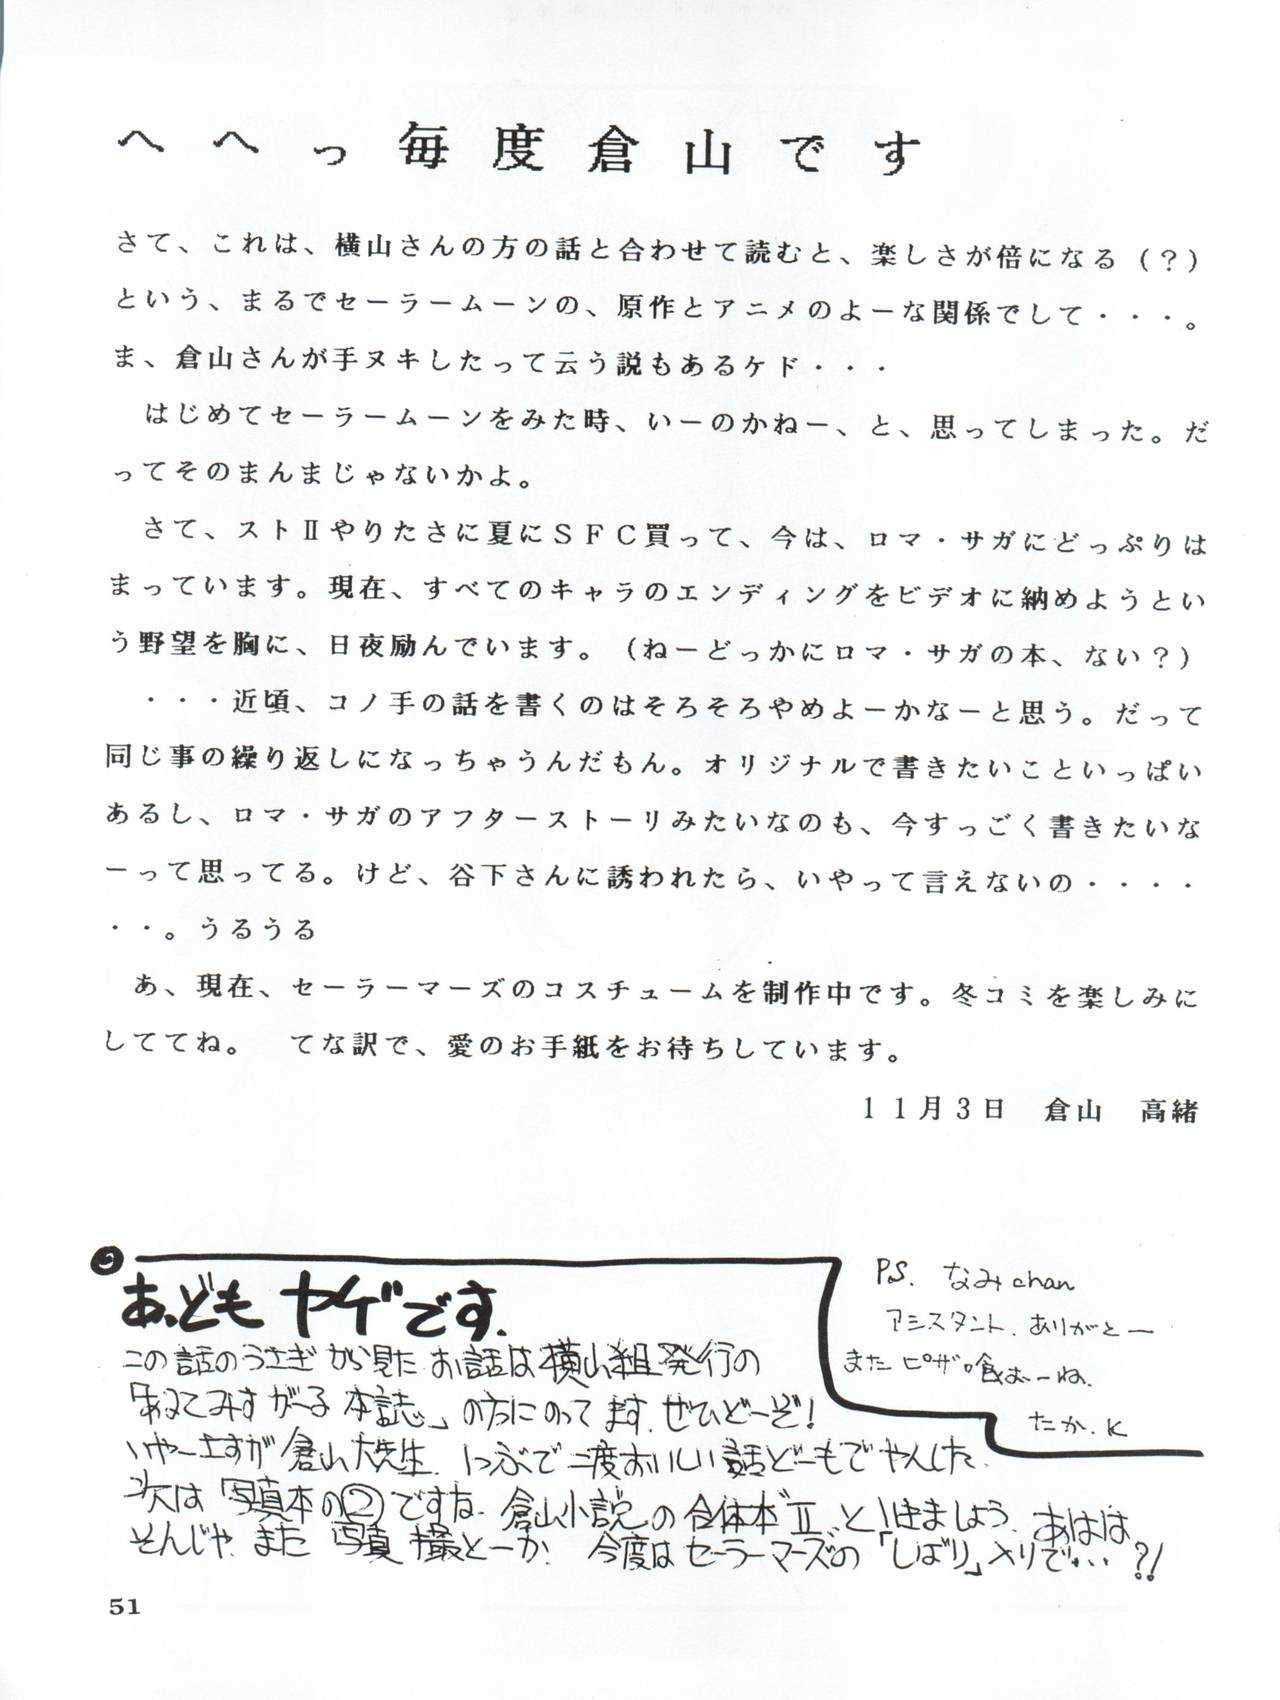 へへっ毎度倉山です
さて、これは、横山さんの方の話と合わせて読むと、楽しさが倍になる（？）
という、まるでセーラームーンの、原作とアニメのよーな関係でして・・・。
ま、倉山さんが手ヌキしたって云う説もあるケド・・・
　はじめてセーラームーンをみた時、いーのかねー、と、思ってしまった。だ
ってそのまんまじゃないかよ。
　さて、ストⅡやりたさに夏にＳＦＣ買って、今は、ロマ・サガにどっぷりは
まっています。現在、すべてのキャラのエンディングをビデオに納めようとい
う野望を胸に、日夜励んでいます。（ねーどっかにロマ・サガの本、ない？）
　・・・近頃、コノ手の話を書くのはそろそろやめよーかなーと思う。だって
同じ事の繰り返しになっちゃうんだもん。オリジナルで書きたいこといっぱい
あるし、ロマ・サガのアフターストーリみたいなのも、今すっごく書きたいな
ーって思ってる。けど、谷下さんに誘われたら、いやって言えないの・・・・
・・。うるうる
　あ、現在、セーラーマーズのコスチュームを制作中です。冬コミを楽しみに
しててね。　てな訳で、愛のお手紙をお待ちしています。
１１月３日　倉山　高緒
あ、ども ヤゲです.
この話のうさぎから見たお話は横山組発行の
「おこてみすがーる本誌」の方にのってます.ぜひどーぞ!
いやーさすが倉山大先生.1つぶで二度おいしい話どーもでやんした.
次は「写真本の②」ですね.倉山小説の合体本Ⅱといきましょう.あはは
そんじゃ.また写真撮とーか.今度はセーラーマーズの「しばり」メリで…?!
P.S. なみchan
アシスタント.ありがとー
またピザ喰おーね.
たか.K
51